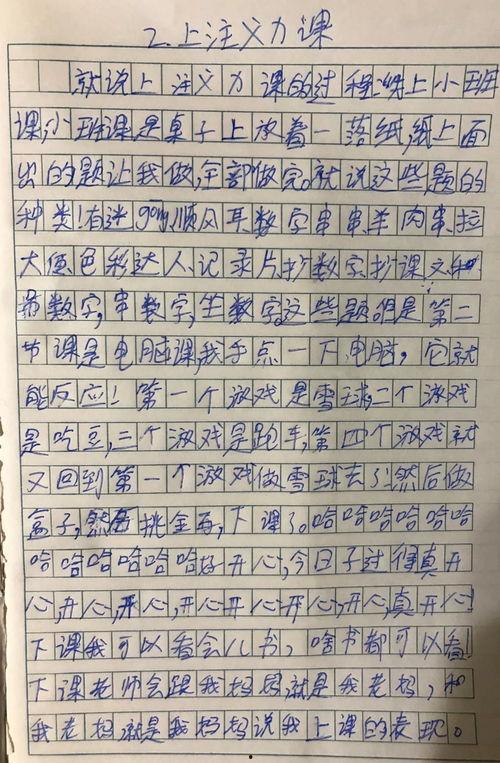 2.上注义力课
就说上注义力课的过程.线上小班
课,小班课是桌子上放着一落纸,纸上面
出的题让我做,全部做完。就说这些题的
种类!有迷gong,顺风耳,数字串串,羊肉串,拉
大便,色彩达人,记录片,抄数字,抄课文和
带数字,串数字,坐数字,这些题。但是第二
节课是电脑课,我手点一下电脑,它就
能反应!第一个游戏是雪球,二个游戏
是吃豆,三个游戏是跑车,第四个游戏就
又回到第一个游戏做雪球去了!然后做
盒子,然后挑金再,下课了。哈哈哈哈哈哈哈
哈哈哈哈哈哈好开心,今日子过得真开
心,开心,开心,开心开心开心,开心,真开心!
下课我可以看会儿书,啥书都可以看!
下课老师会跟我妈妈,就是我老妈,和
我老妈就是我妈妈说我上课的表现。